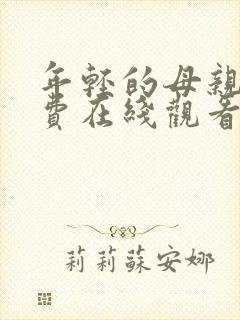 年轻的母親
費在綫觀看
莉莉蘇安娜